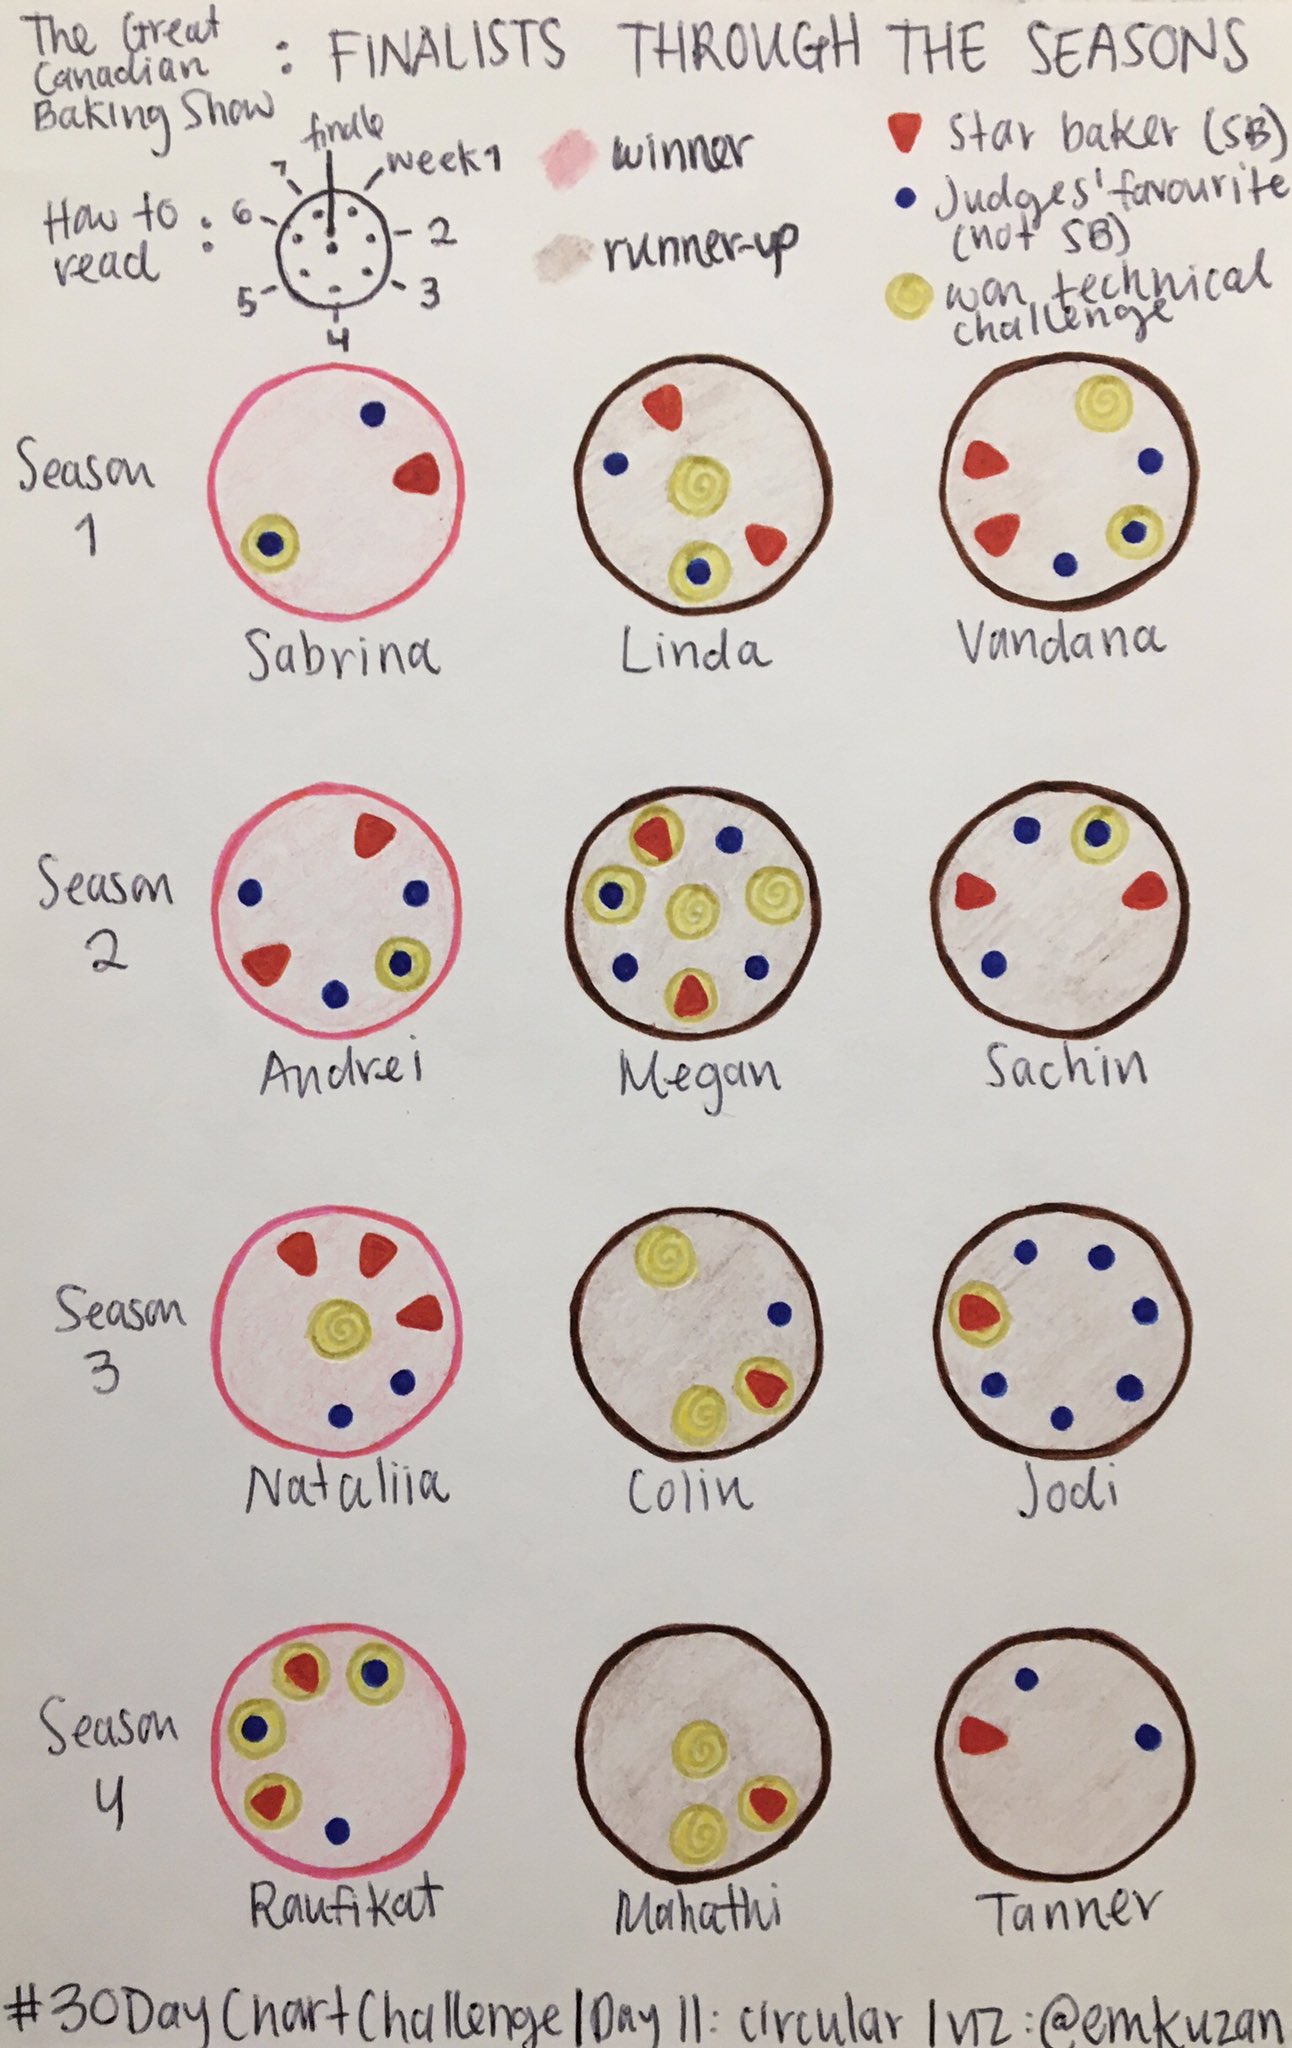 The Great
Canadian
Baking Show
: FINALISTS THROUGH THE SEASONS
How to
read :
finale
week 1
2
3
4
5
6
7
winner
runner-up
Star baker (SB)
Judges' favourite
(not SB)
won technical
challenge
Season
1
Sabrina
Linda
Vandana
Season
2
Andrei
Megan
Sachin
Season
3
Nataliia
Colin
Jodi
Season
4
Raufikat
Mahathi
Tanner
#30DayChartChallenge | Day 11: circular | viz: @emkuzan